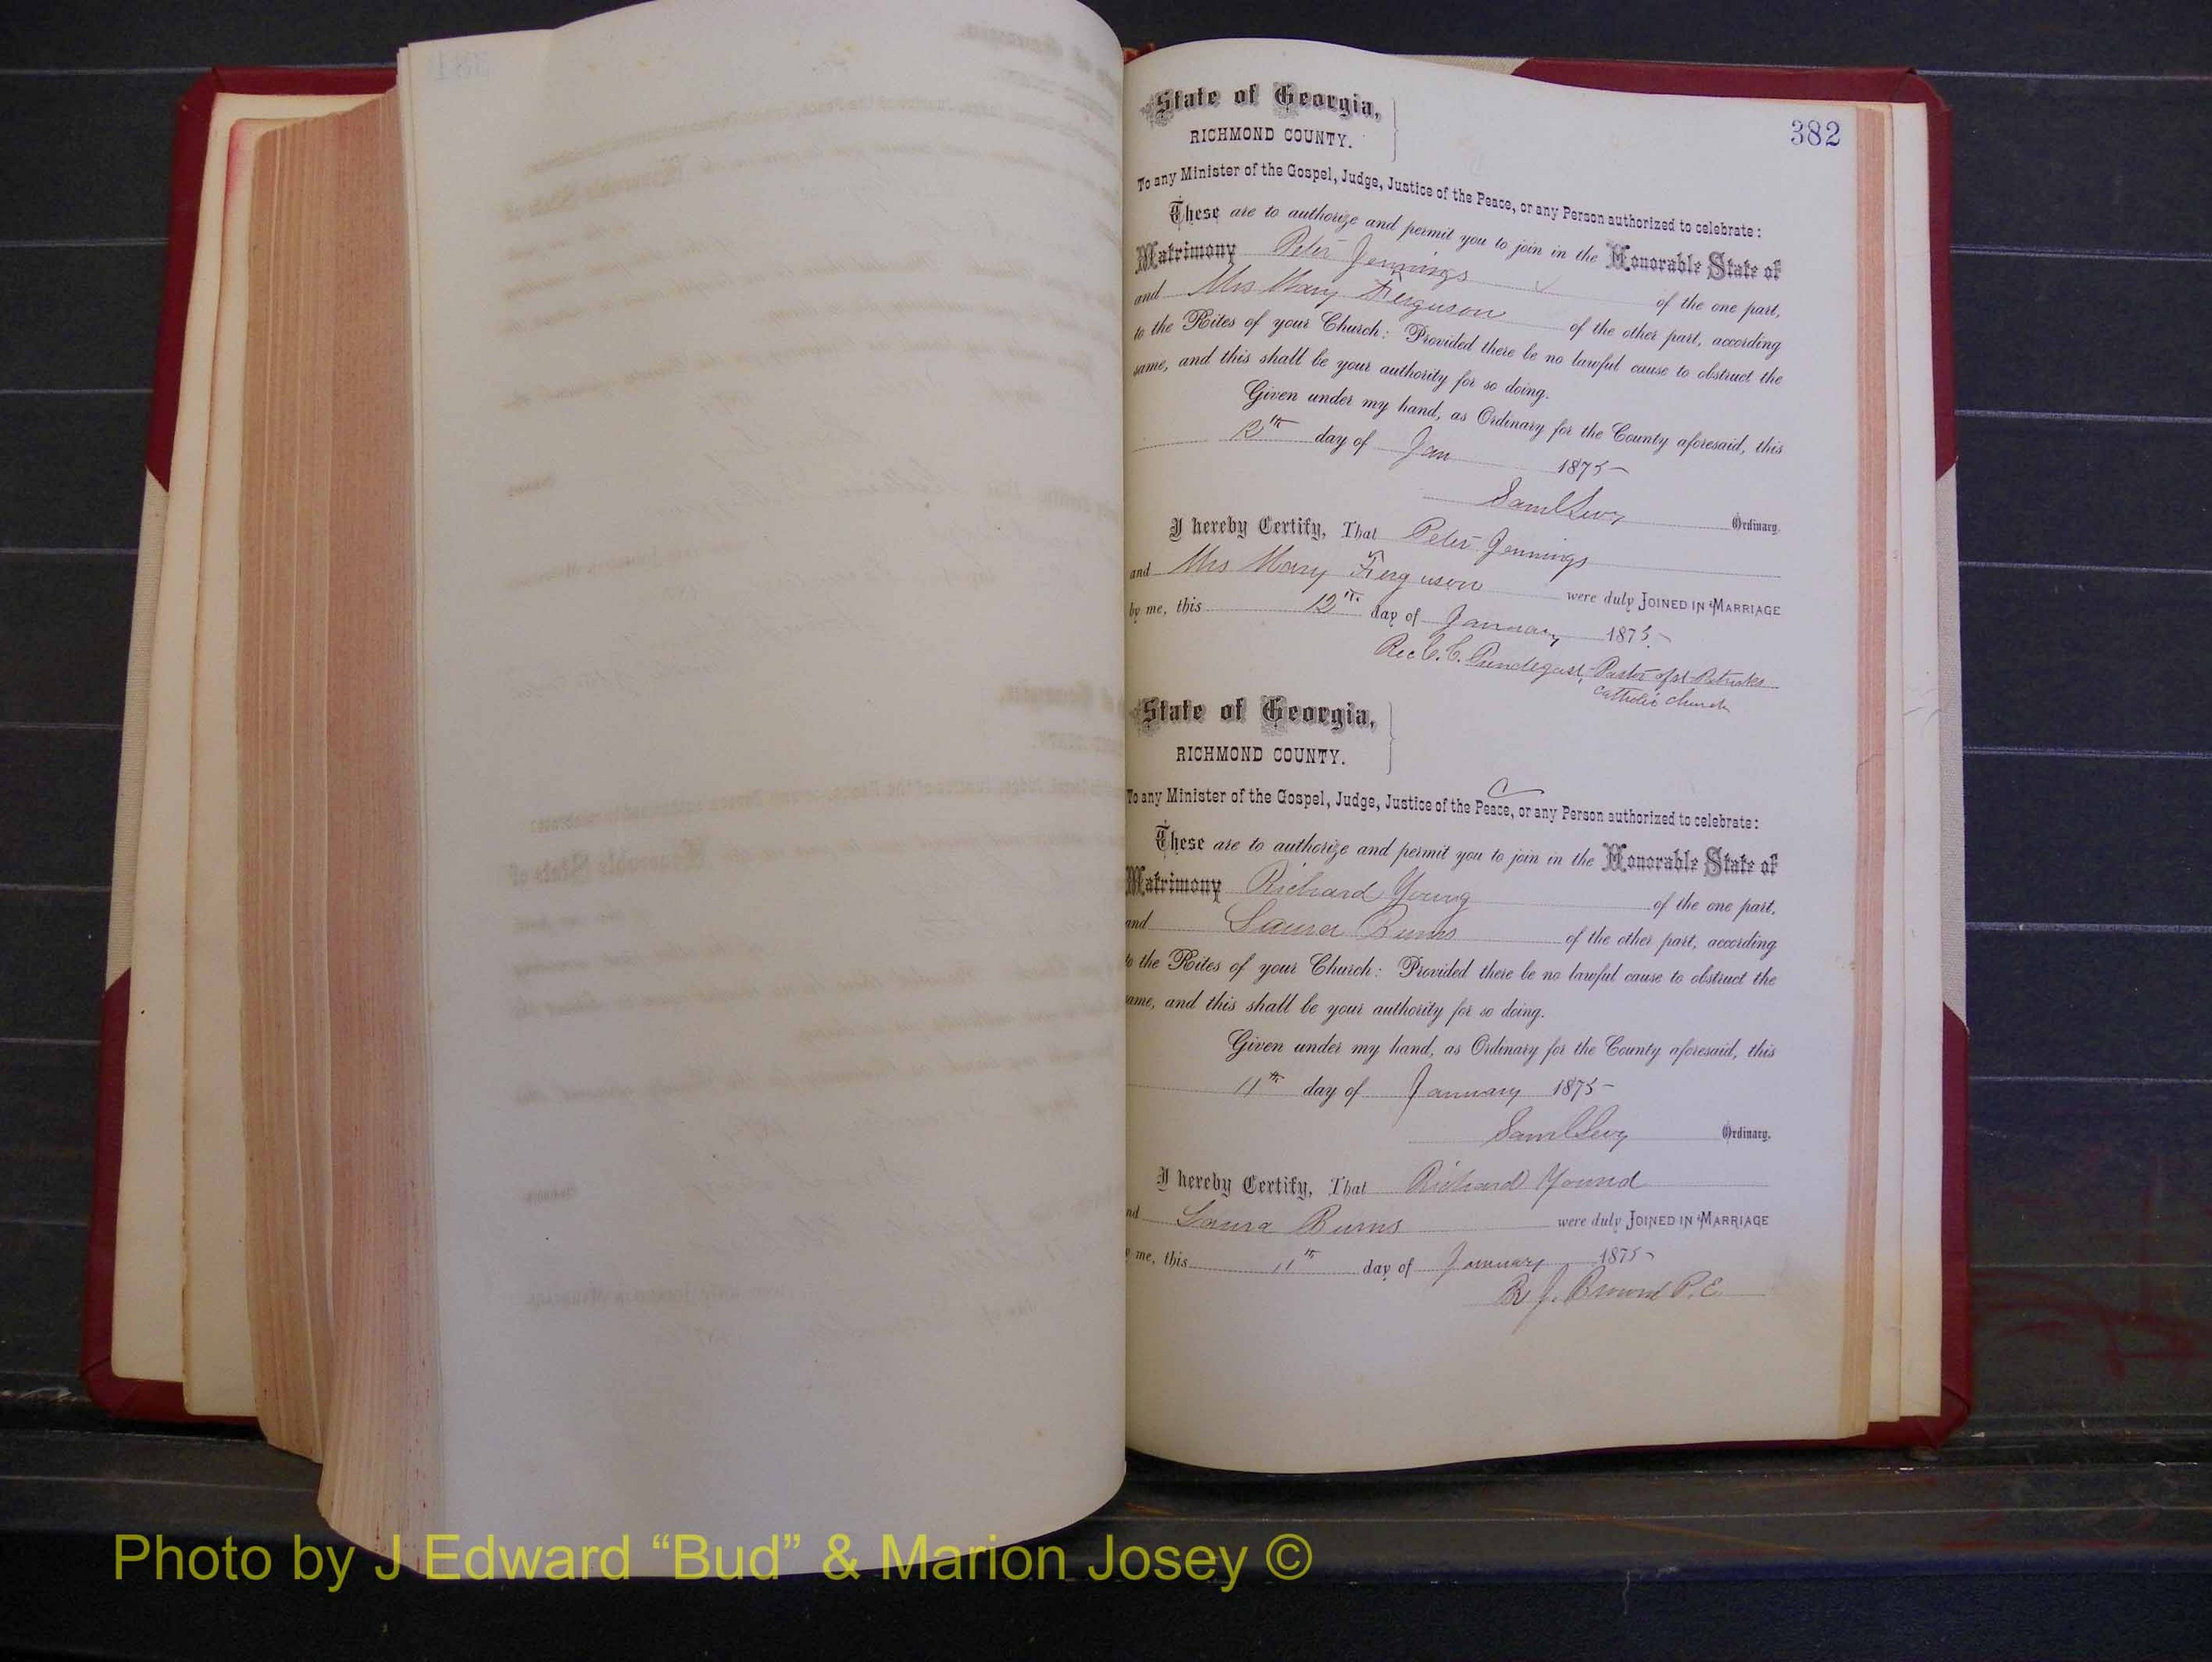 382
State of Georgia,
RICHMOND COUNTY.
To any Minister of the Gospel, Judge, Justice of the Peace, or any Person authorized to celebrate:
These are to authorize and permit you to join in the Honorable State of
Matrimony Peter Jennings of the one part,
and Mrs Mary Ferguson of the other part, according
to the Rites of your Church: Provided there be no lawful cause to obstruct the
same, and this shall be your authority for so doing.
Given under my hand, as Ordinary for the County aforesaid, this
12th day of Jan 1875
Saml Levy Ordinary.
I hereby Certify, That Peter Jennings
and Mrs Mary Ferguson were duly JOINED IN MARRIAGE
by me, this 12th day of January 1875
C. C. Prendegast, Pastor of St Patricks
Catholic church
State of Georgia,
RICHMOND COUNTY.
C
To any Minister of the Gospel, Judge, Justice of the Peace, or any Person authorized to celebrate:
These are to authorize and permit you to join in the Honorable State of
Matrimony Richard Young of the one part,
and Laura Burns of the other part, according
to the Rites of your Church: Provided there be no lawful cause to obstruct the
same, and this shall be your authority for so doing.
Given under my hand, as Ordinary for the County aforesaid, this
11th day of January 1875
Saml Levy Ordinary.
I hereby Certify, That Richard Yound
nd Laura Burns were duly JOINED IN MARRIAGE
me, this 11th day of January 1875
R J. Brown P. E.
Photo by J Edward “Bud” & Marion Josey ©